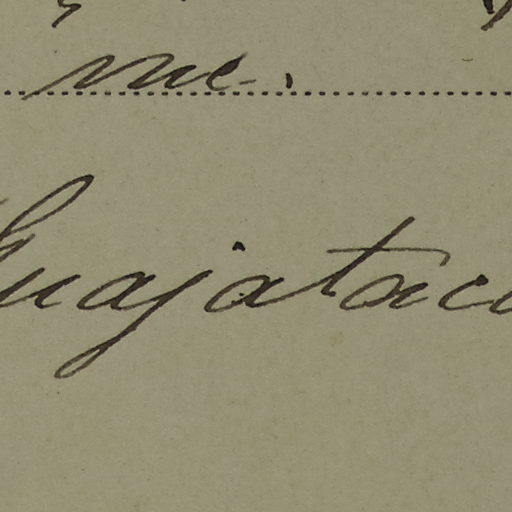 me.
Guajataca